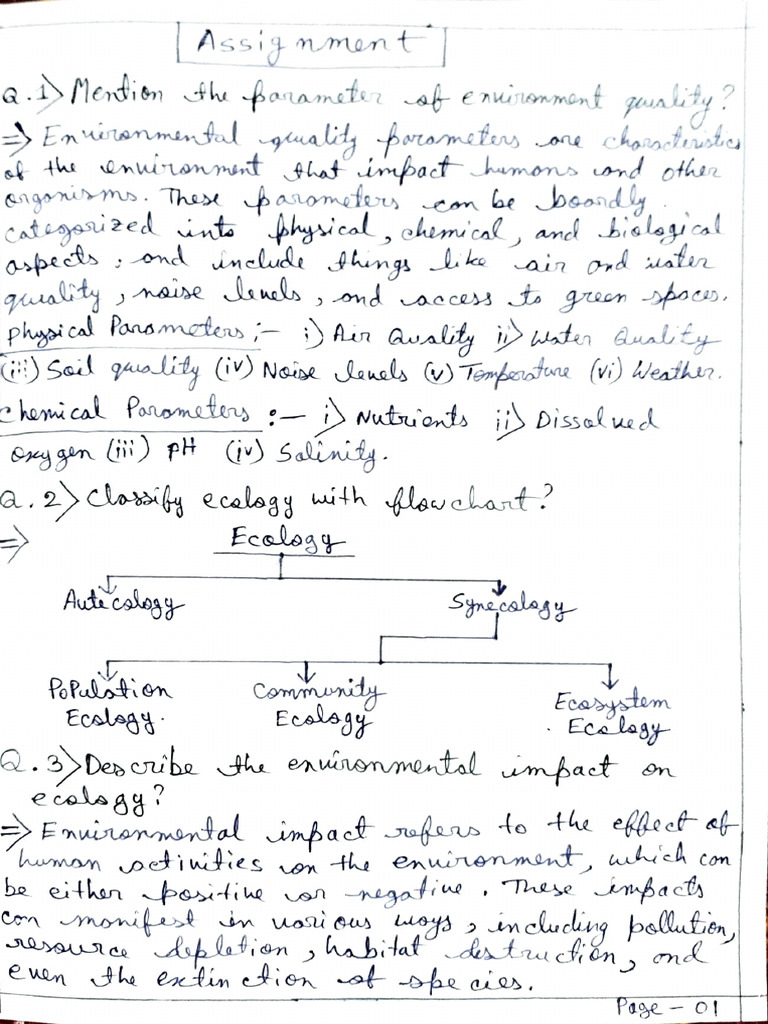 Assignment
Q.1> Mention the parameter of environment quality?
=> Environmental quality parameters are characteristics
of the environment that impact humans and other
organisms. These parameters can be boardly.
categorized into physical, chemical, and biological
aspects, and include things like air and water
quality, noise levels, and access to green spaces.
Physical Parameters :- i) Air Quality ii) Water Quality
(iii) Soil quality (iv) Noise levels (v) Temperature (vi) Weather.
Chemical Parameters :- i) Nutrients ii) Dissolved
oxygen (iii) pH (iv) Salinity.
Q.2> Classify ecology with flowchart?
=>
Ecology
Autecology Synecology
Population Community Ecosystem
Ecology. Ecology Ecology
Q.3> Describe the environmental impact on
ecology?
=> Environmental impact refers to the effect of
human activities on the environment, which can
be either positive or negative. These impacts
can manifest in various ways, including pollution,
resource depletion, habitat destruction, and
even the extinction of species.
Page - 01